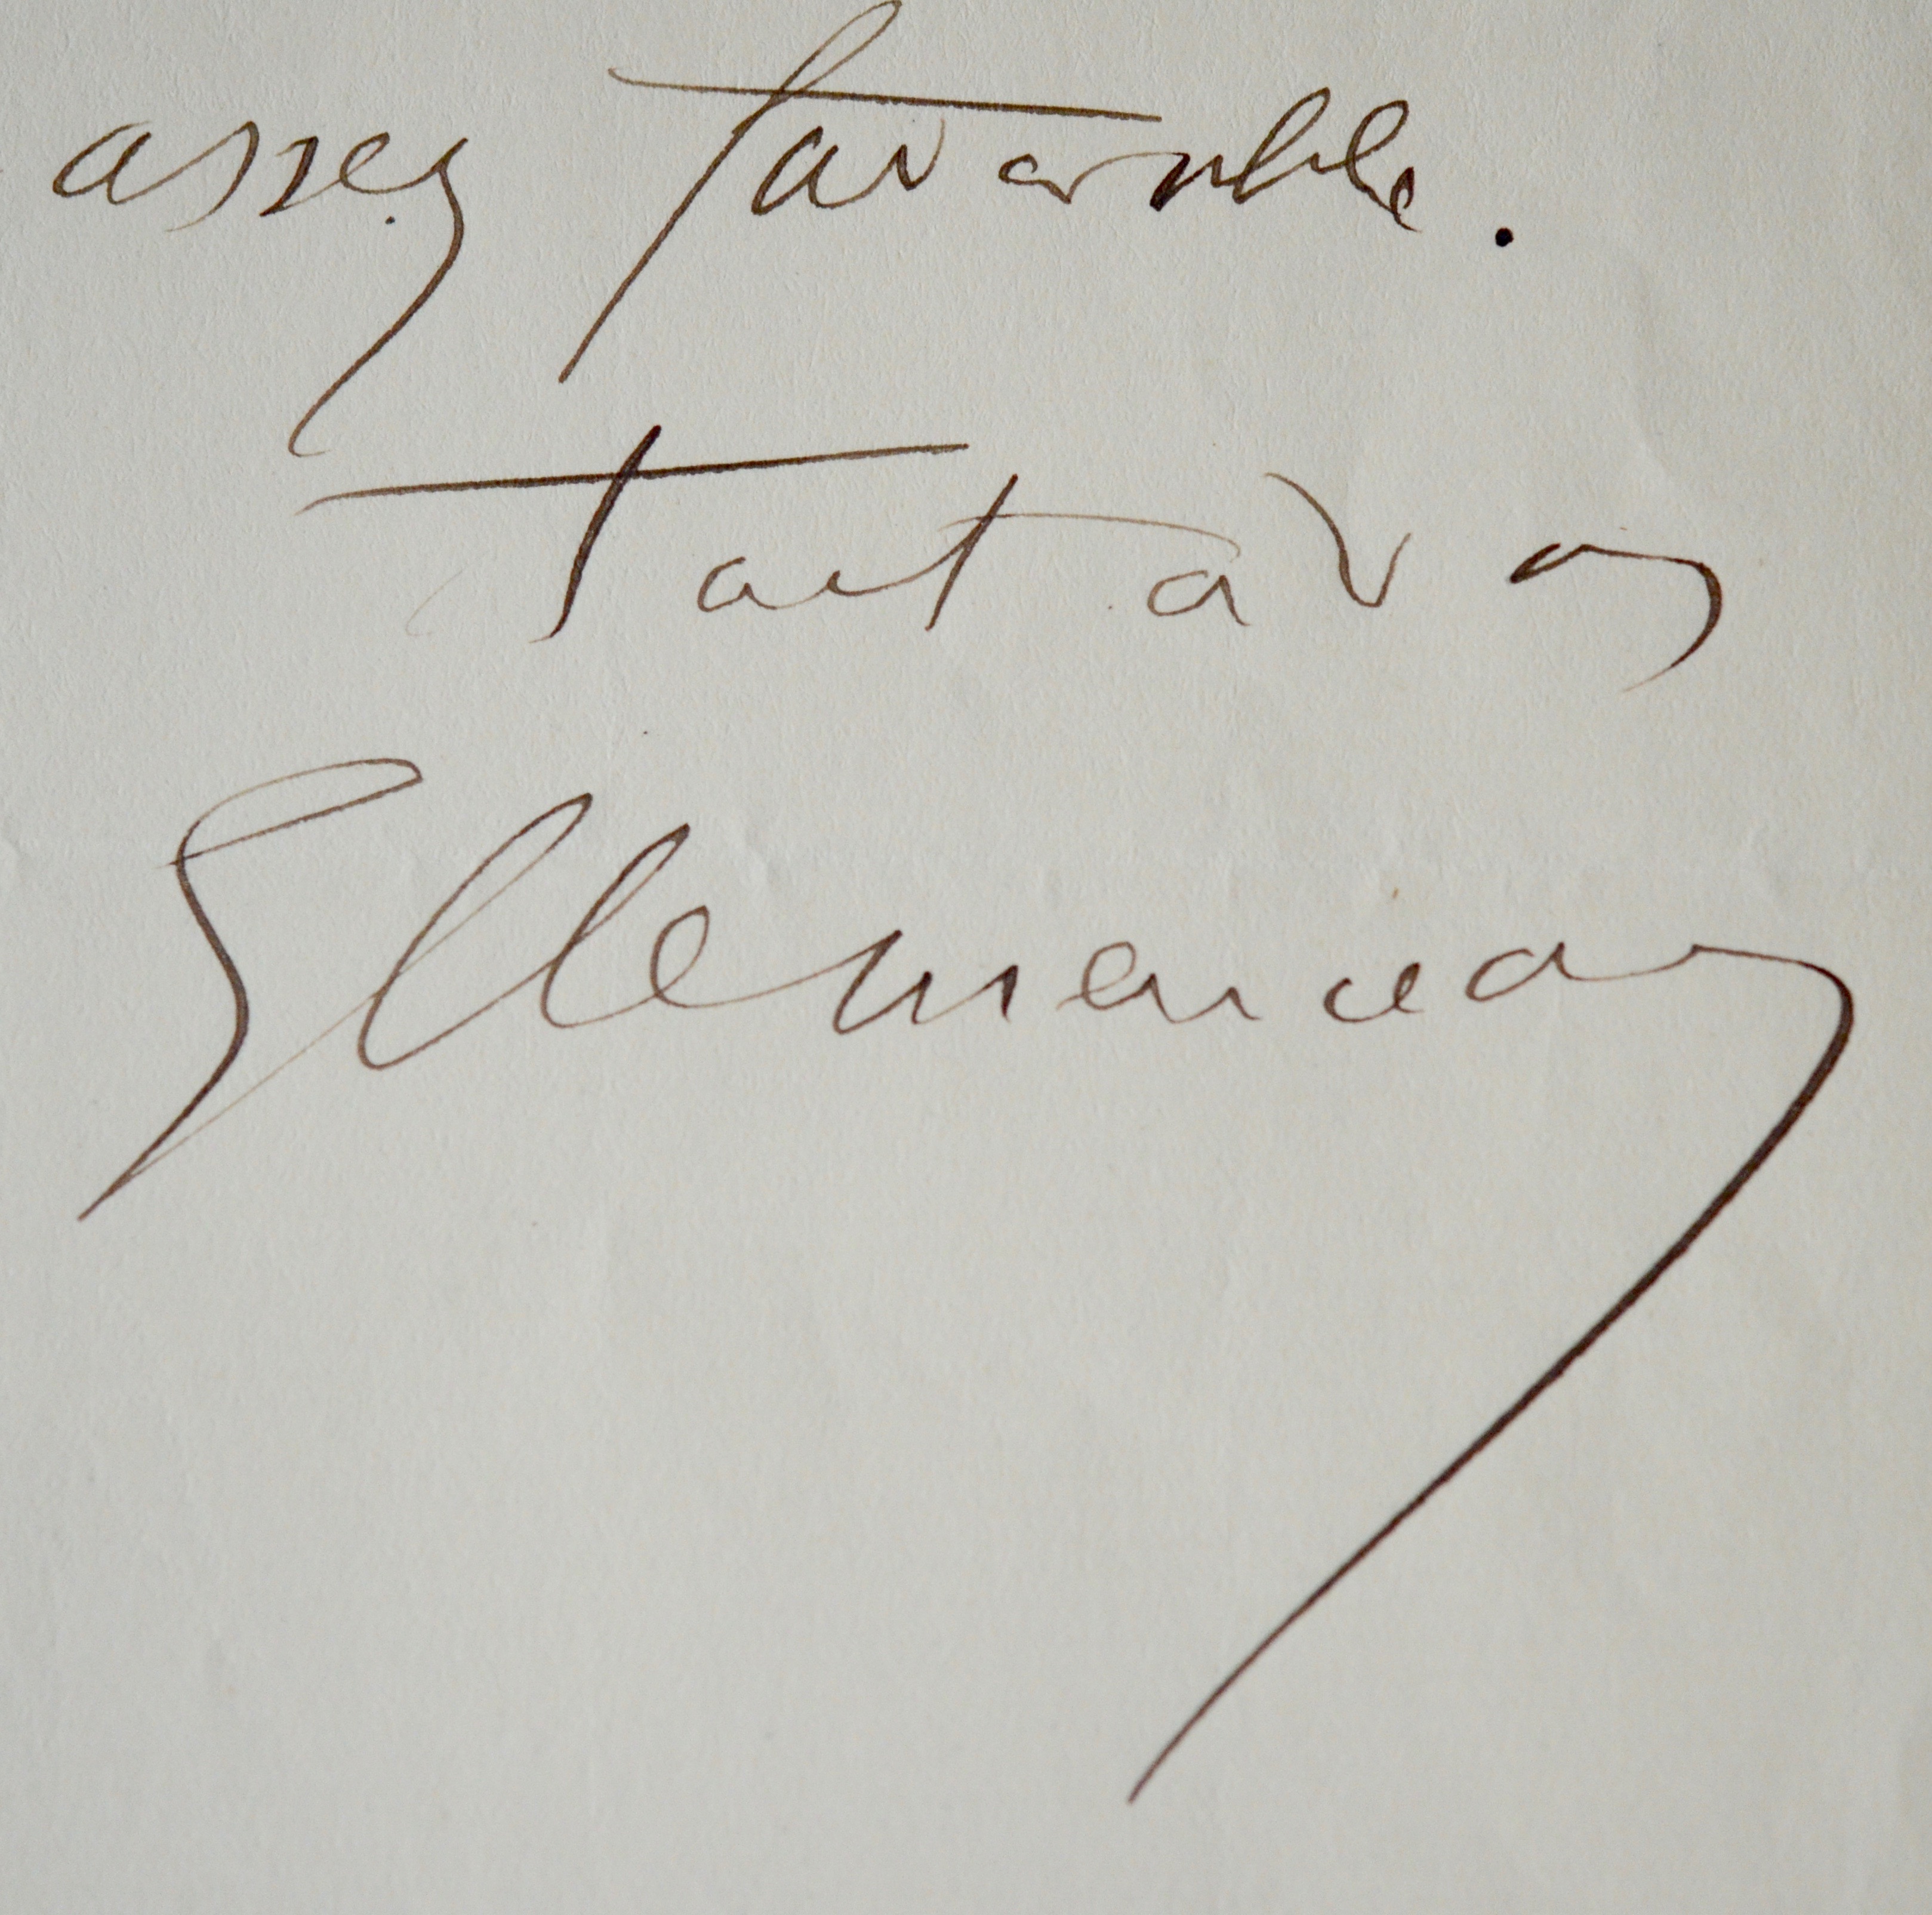 assez favorable.
Tout à vous
GClemenceau